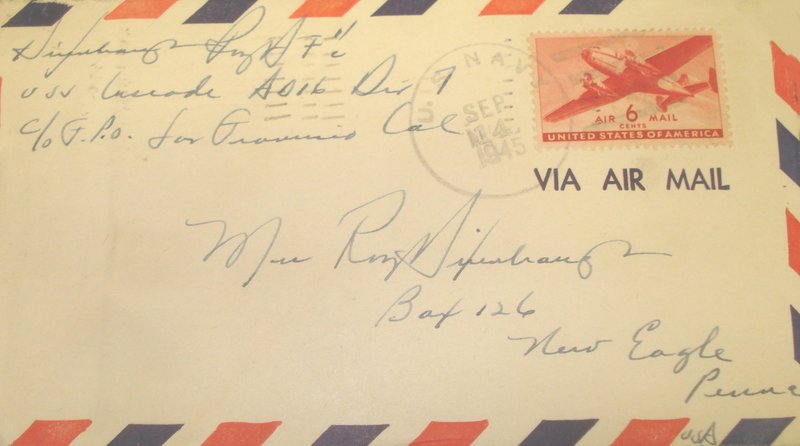 Roy
USS Cascade AD16 Div 7
c/o F.P.O. San Francisco Cal
U.S. NAVY
SEP
14
1945
AIR 6 MAIL
CENTS
UNITED STATES OF AMERICA
VIA AIR MAIL
Mrs Roy
Box 126
New Eagle
Penna
USA